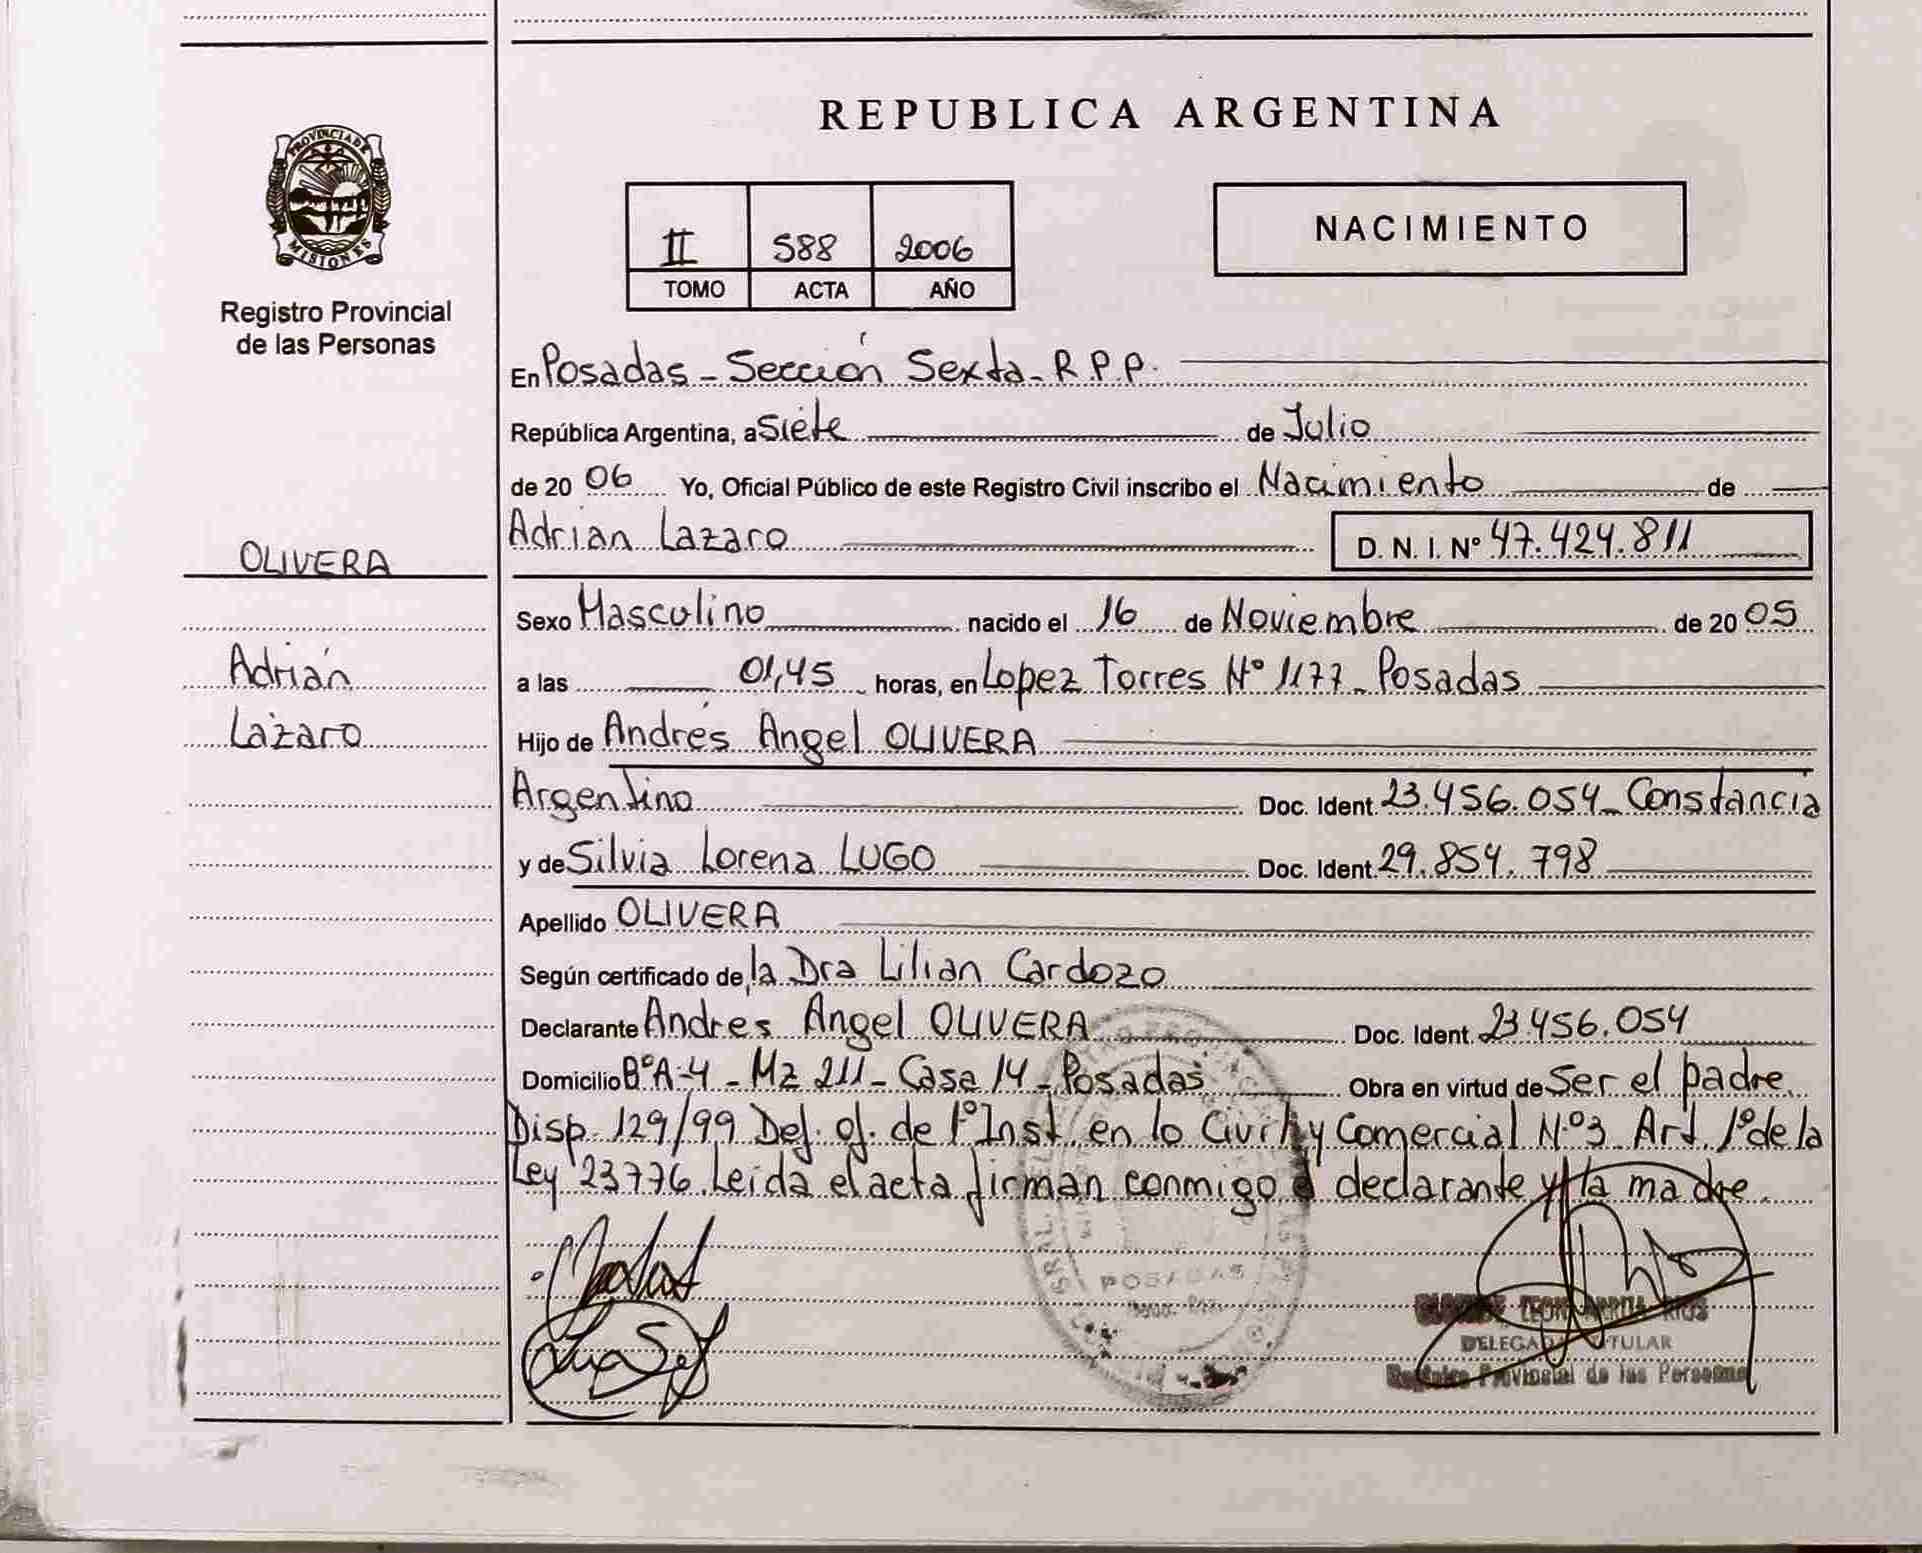 PROVINCIA DE
MISIONES
Registro Provincial
de las Personas
OLIVERA
Adrián
Lázaro
REPUBLICA ARGENTINA
II 588 2006
TOMO ACTA AÑO
NACIMIENTO
En Posadas - Sección Sexta - R.P.P.
República Argentina, a Siete de Julio
de 20 06 Yo, Oficial Público de este Registro Civil inscribo el Nacimiento de
Adrián Lazaro D. N. I. Nº 47.424.811
Sexo Masculino nacido el 16 de Noviembre de 20 05
a las 01,45 horas, en Lopez Torres Nº 1177 - Posadas
Hijo de Andrés Angel OLIVERA
Argentino Doc. Ident. 23.456.054 - Constancia
y de Silvia Lorena LUGO Doc. Ident. 29.854.798
Apellido OLIVERA
Según certificado de la Dra Lilian Cardozo
Declarante Andres Angel OLIVERA Doc. Ident. 23.456.054
Domicilio BºA-4 - Mz 211 - Casa 14 - Posadas Obra en virtud de Ser el padre.
Disp. 129/99 Def. of. de 1º Inst. en lo Civil y Comercial Nº3 Art. 1º de la
Ley 23776. Leída el acta firman conmigo el declarante y la madre.
POSADAS
DELEGADA TITULAR
Registro Provincial de las Personas